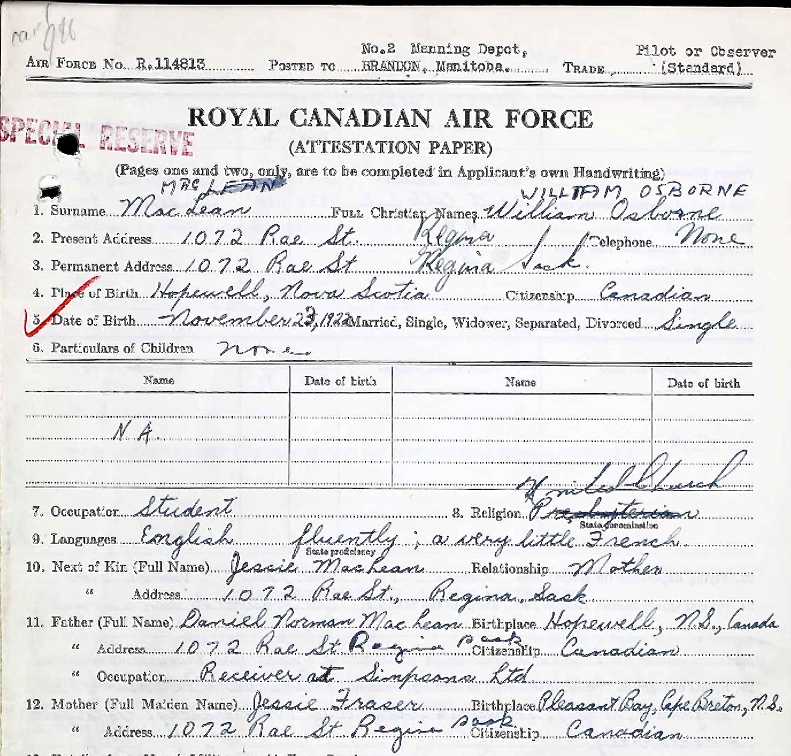 No.2 Manning Depot, Pilot or Observer
AIR FORCE No. R.114813 POSTED TO BRANDON, Manitoba. TRADE (Standard)
ROYAL CANADIAN AIR FORCE
SPECIAL RESERVE
(ATTESTATION PAPER)
(Pages one and two, only, are to be completed in Applicant's own Handwriting)
MACLEAN WILLIAM OSBORNE
1. Surname MacLean FULL Christian Names William Osborne
2. Present Address 1072 Rae St. Regina Telephone None
3. Permanent Address 1072 Rae St Regina Sask.
4. Place of Birth Hopewell, Nova Scotia Citizenship Canadian
5. Date of Birth November 23, 1922 Married, Single, Widower, Separated, Divorced Single
6. Particulars of Children None
Name Date of birth Name Date of birth
N A.
United Church
7. Occupation Student 8. Religion Presbyterian
State denomination
9. Languages English fluently; a very little French.
State proficiency
10. Next of Kin (Full Name) Jessie MacLean Relationship Mother
" Address 1072 Rae St., Regina, Sask
11. Father (Full Name) Daniel Norman MacLean Birthplace Hopewell, N.S., Canada
" Address 1072 Rae St Regina Sask Citizenship Canadian
" Occupation Receiver at Simpsons Ltd
12. Mother (Full Maiden Name) Jessie Fraser Birthplace Pleasant Bay, Cape Breton, N.S.
" Address 1072 Rae St Regina Sask Citizenship Canadian